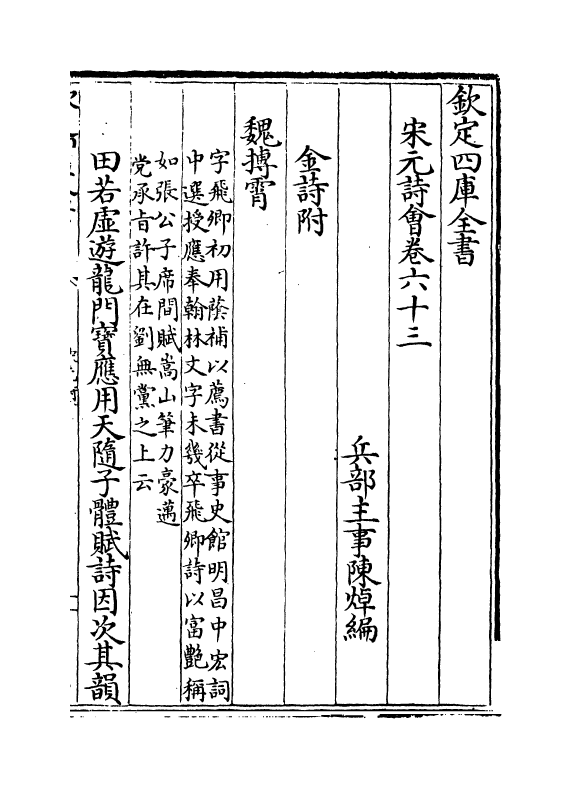 欽定四庫全書
宋元詩會卷六十三
兵部主事陳焯編
金詩附
魏摶霄
字飛卿初用蔭補以薦書從事史館明昌中宏詞
中選授應奉翰林文字未幾卒飛卿詩以富艷稱
如張公子席間賦嵩山筆力豪邁
党承旨許其在劉無黨之上云
田若虛遊龍門寶應用天隨子體賦詩因次其韻